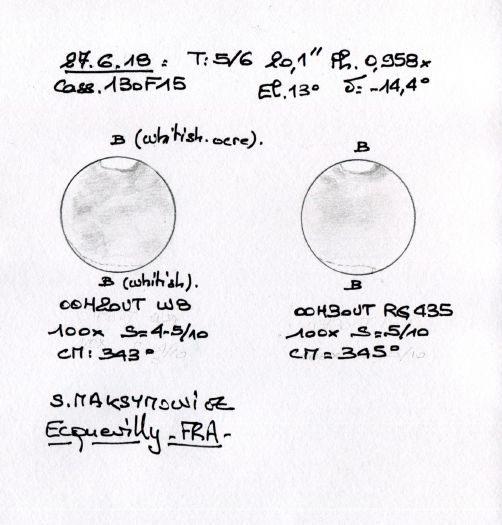 27.6.18 : T: 5/6 20,1" Ph. 0,958x
Cass. 130F15 El. 13° δ= -14,4°
B (whitish-ocre).
B
B (whitish).
B
00H20UT W8
00H30UT RG 435
100x S=4-5/10
100x S=5/10
CM: 343°
CM = 345°
S. MAKSYMOWICZ
Ecquevilly - FRA -